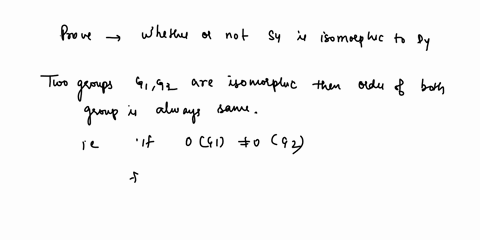 Prove → Whether or not S4 is isomorphic to D4
Two groups G1, G2 are isomorphic then order of both
group is always same.
ie if O(G1) ≠ O(G2)